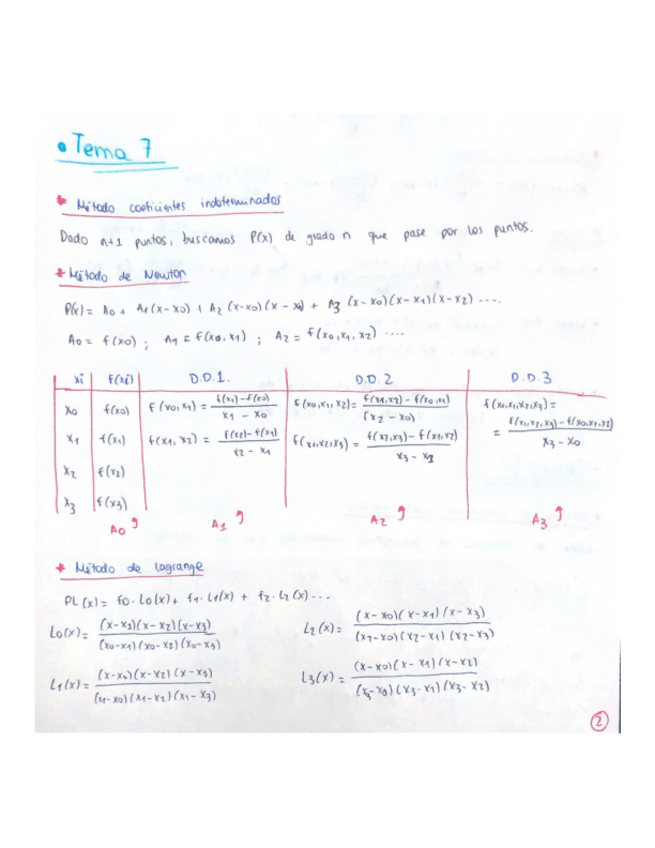 • Tema 7
* Método coeficientes indeterminados
Dado n+1 puntos, buscamos P(x) de grado n que pase por los puntos.
* Método de Newton
P(x) = A0 + A1(x-x0) + A2 (x-x0)(x-x1) + A3 (x-x0)(x-x1)(x-x2) ....
A0 = f(x0) ; A1 = f(x0,x1) ; A2 = f(x0,x1,x2) ....
xi | f(xi) | D.D.1. | D.D.2 | D.D.3
x0 | f(x0) | f(x0,x1) = (f(x1)-f(x0))/(x1-x0) | f(x0,x1,x2) = (f(x1,x2)-f(x0,x1))/(x2-x0) | f(x0,x1,x2,x3) =
x1 | f(x1) | f(x1,x2) = (f(x2)-f(x1))/(x2-x1) | f(x1,x2,x3) = (f(x2,x3)-f(x1,x2))/(x3-x1) | = (f(x1,x2,x3)-f(x0,x1,x2))/(x3-x0)
x2 | f(x2)
x3 | f(x3)
A0 A1 A2 A3
* Método de lagrange
PL(x) = f0·L0(x) + f1·L1(x) + f2·L2(x)....
L0(x) = (x-x1)(x-x2)(x-x3)/(x0-x1)(x0-x2)(x0-x3)
L2(x) = (x-x0)(x-x1)(x-x3)/(x2-x0)(x2-x1)(x2-x3)
L1(x) = (x-x0)(x-x2)(x-x3)/(x1-x0)(x1-x2)(x1-x3)
L3(x) = (x-x0)(x-x1)(x-x2)/(x3-x0)(x3-x1)(x3-x2)
2